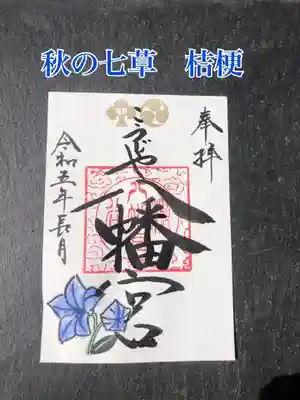 秋の七草　桔梗
奉拝
八幡宮
令和五年長月